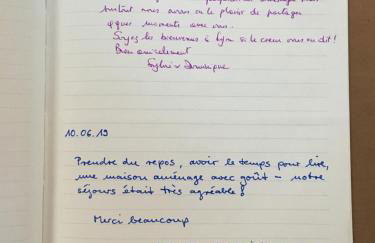 surtout nous avons eu le plaisir de partager
qques moments avec vous.
Soyez les bienvenus à Lyon si le coeur vous en dit!
Bien amicalement
Sylvie & Dominique
10.06.19
Prendre du repos, avoir le temps pour lire,
une maison aménagé avec goût – notre
séjours était très agréable!
Merci beaucoup